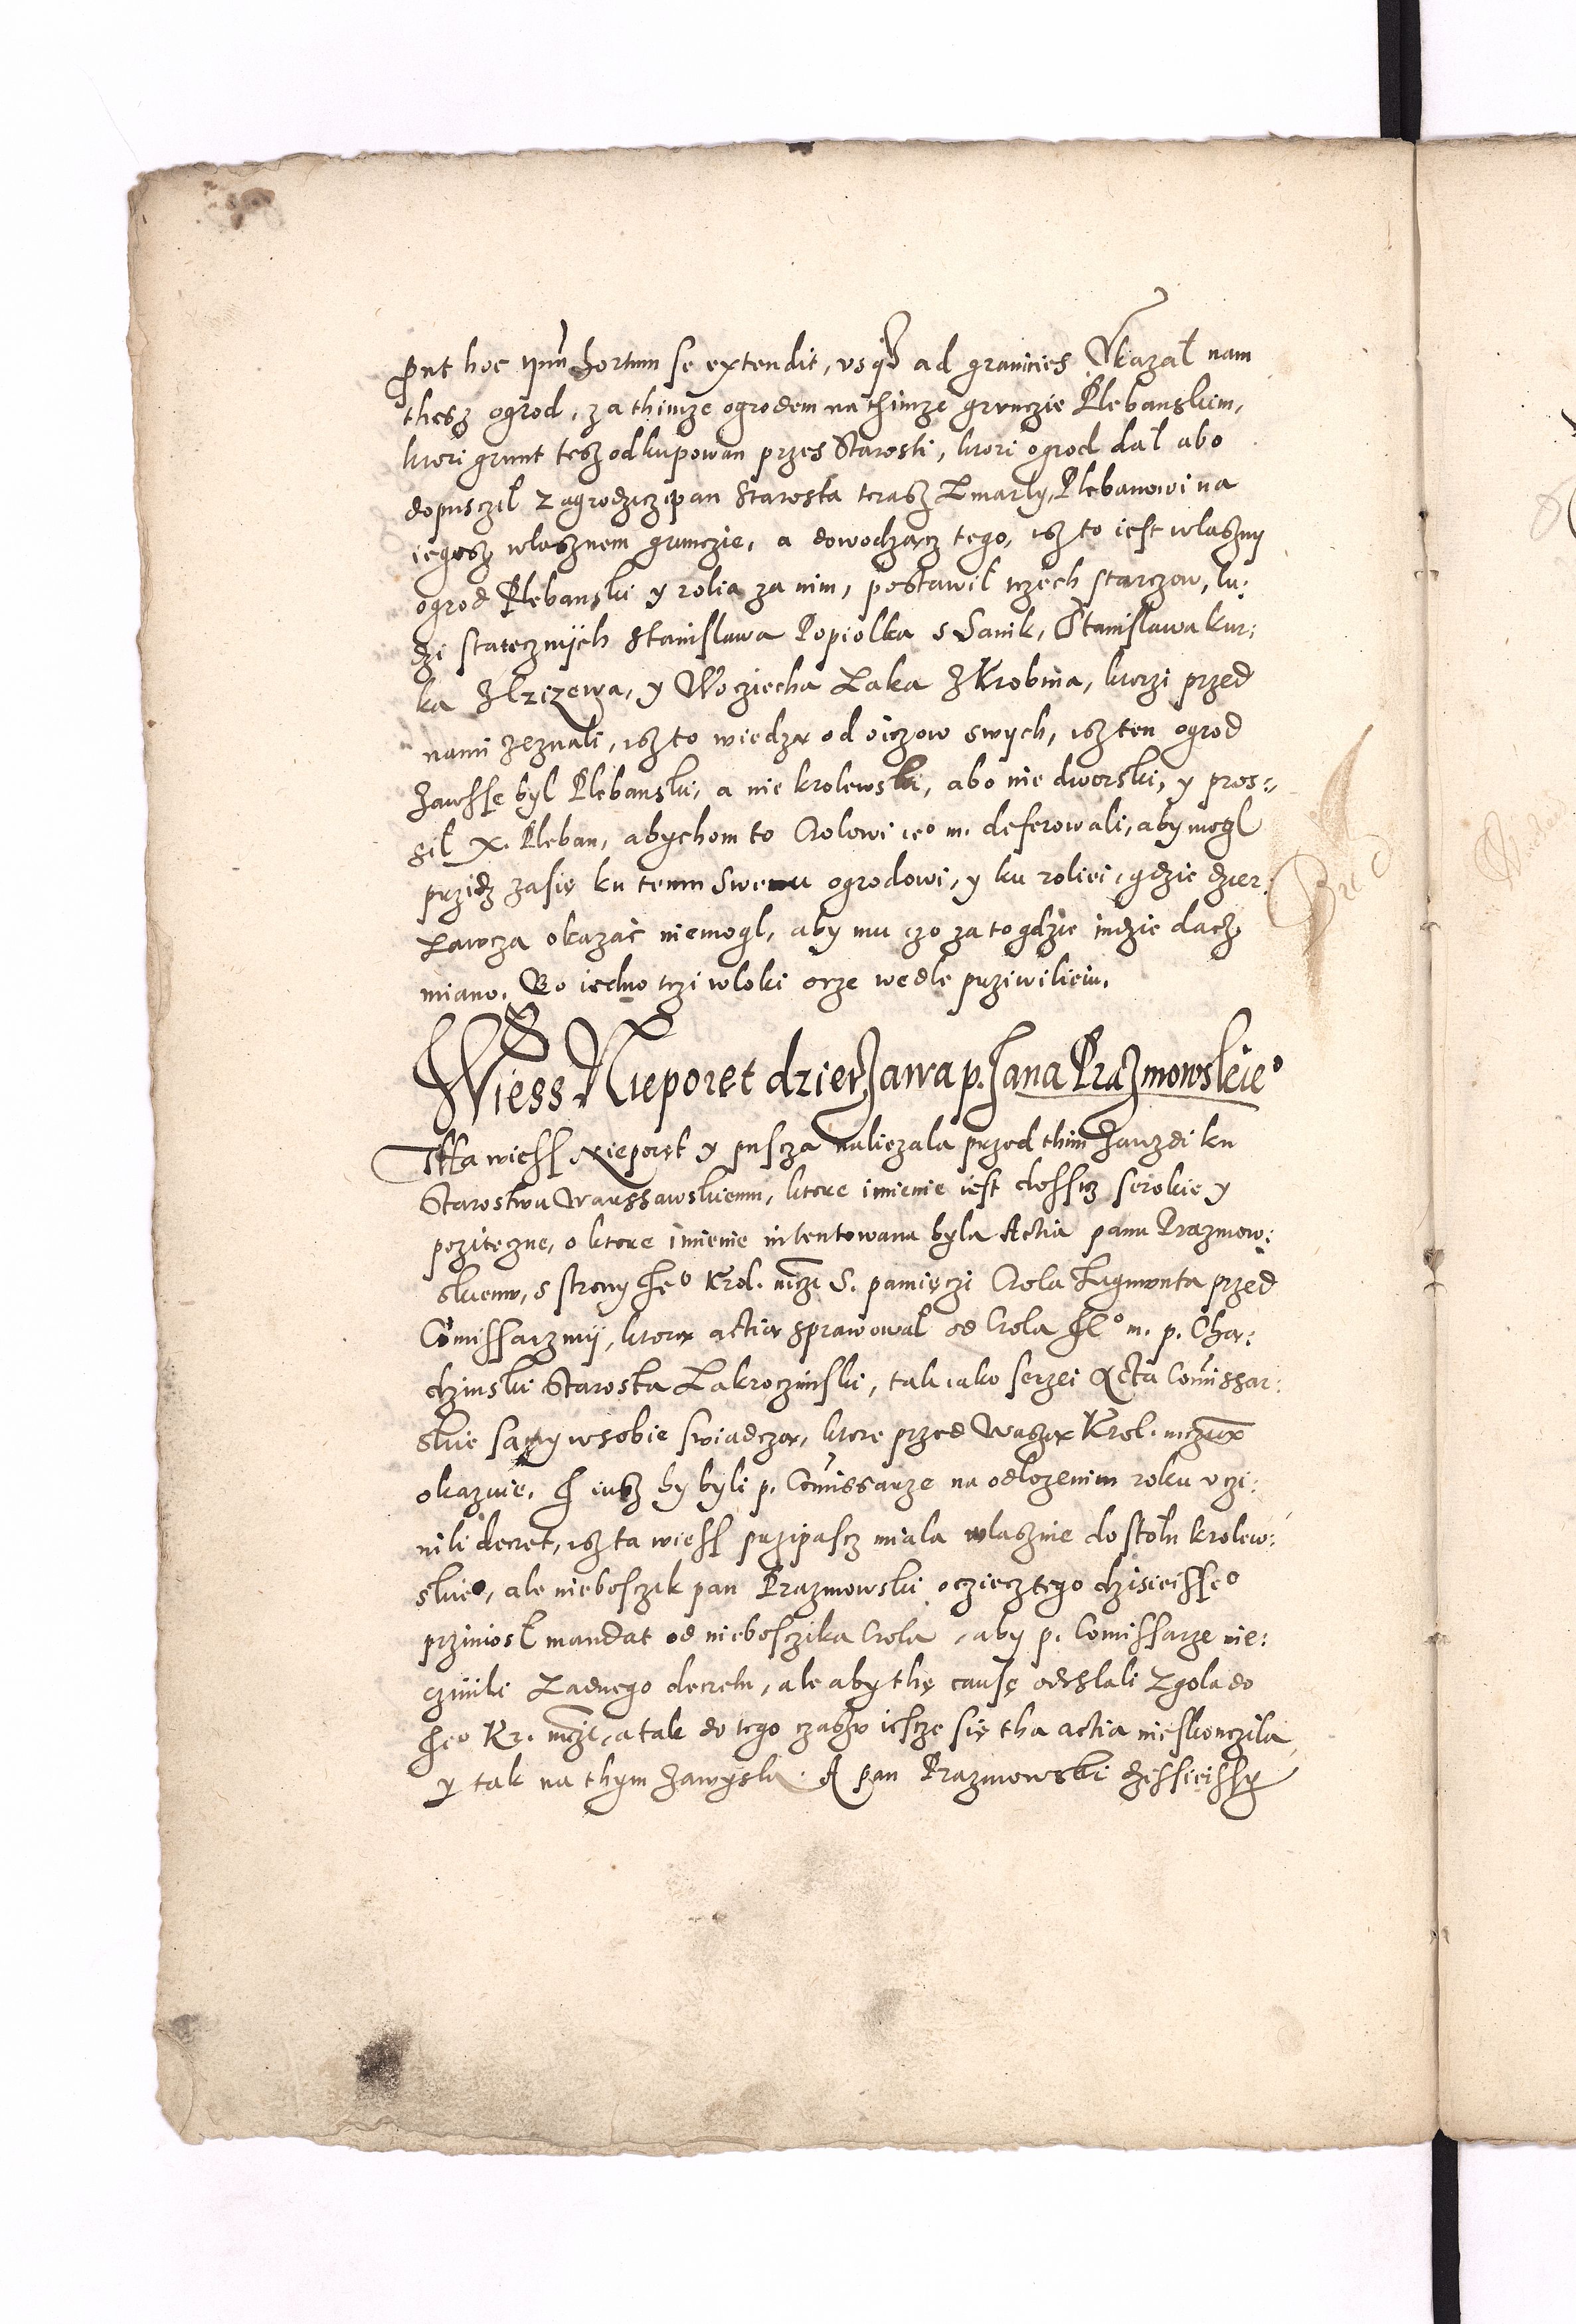 put hoc ipm hortum se extendit, vsq̃ ad granicies. Vkazał nam
thesz ogrod, za thimze ogrodem na thimze grvnczie Plebanskim,
ktori grunt tesz odkupowan przes Starosti, ktori ogrod dal abo
dopusczil zagrodziczi pan Starosta terasz Zmarly, Plebanowi na
iegosz własznem gruncie, a dowodząncz tego, isz to iest własny
ogrod Plebanski y rolia za nim, postawil trzech starczow, lu:
dzi statecznijch Stanislawa Popiolka s Lanik, Stanislawa kur:
ka z Izizewa, y Woczecha Zaka z Krobina, ktorzi przed
nami zeznali, isz to wiedzą od oiczow swych, isz ten ogrod
zawsse byl Plebanski, a nie krolewski, abo nie dworski, y pros:
sil X. Pleban, abychom to Crolowi ieº m. deferowali, aby mogl
przidz zasię ku temu swemu ogrodowi, y ku roliei, gdzie dzier:
zawcza okazać niemogl, aby mu czo za to gdzie indzie dacz
miano. Bo iedno trzi wloki orze wedle prziwilieiu.
Wiess Nieporet dzierzawa p. Jana Prazmowskieº
Tha wiess Nieporęt y puscza naliezala przed thim zawzdi ku
Starostwu Warssawskiemu, ktore imienie iest dossicz serokie y
pozitezne, o ktore imienie intentowana byla Actia panu Prazmow:
skiemu, s strony Jeº Krol. mczi S. pamięczi Crola Zugmonta przed
Comissarzmij, ktorą actią sprawował od Crola Jeº m. p. Char:
dzinski Starosta Zakroczimski, tak iako serzei Acta Comissar:
skie samy w sobie swiadczą, ktore przed Waszą Krol. mczią
okazuie. J iusz by byli p. Comissarze na odlozenim roku vczi:
nili decret, isz ta wiess przipascz miala wlasznie do stolu krolew:
skieº, ale niebosczik pan Prazmowski oczecz tego dzisieisseº
przinosł mandat od niebosczika Crola, aby p. Comissarze nie:
czinili Zadnego decretu, ale aby thę causę odeslali Zgola do
Jeº Kr. mczi, a tak do tego czassu iescze się tha actia nieskonczila,
y tak na thym zawysla. A pan Prazmowski dzissieissy